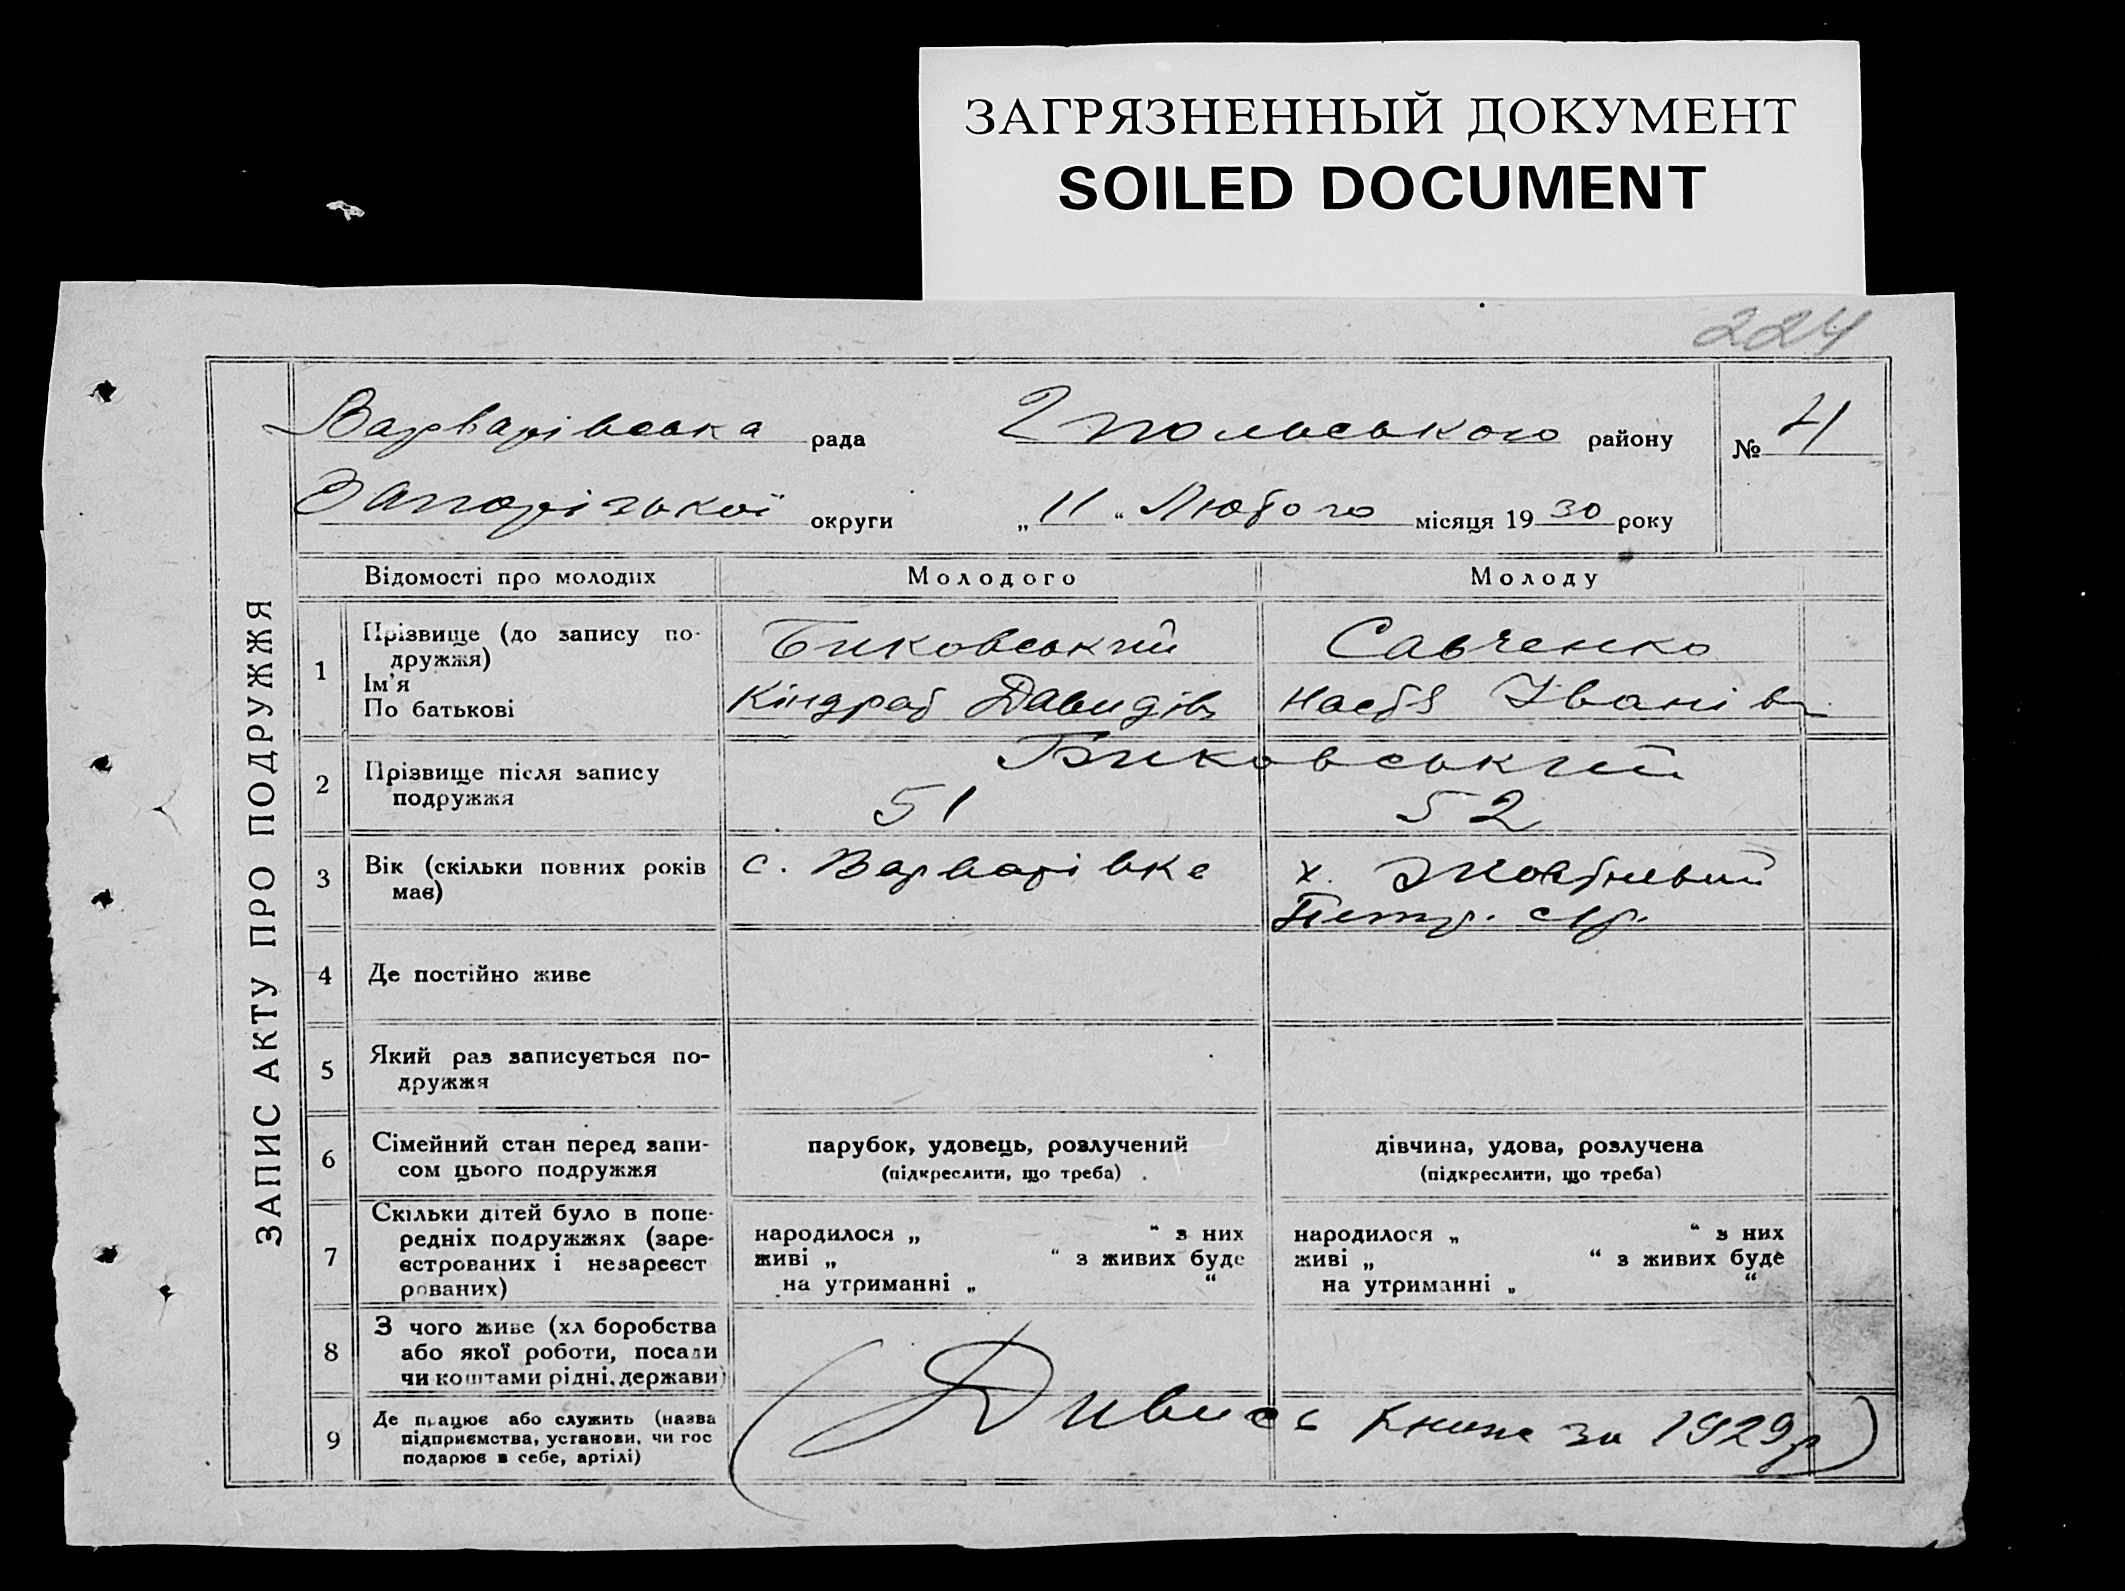 ЗАГРЯЗНЕННЫЙ ДОКУМЕНТ
SOILED DOCUMENT
224
ЗАПИС АКТУ ПРО ПОДРУЖЖЯ
Варварівська рада Гпольського району № 4
Запорізької округи „ 11 “ Лютого місяця 19 30 року
Відомості про молодих Молодого Молоду
1 Прізвище (до запису по-
дружжя)
Ім'я
По батькові
Биковський Савченко
Кіндрат Давидів Настя Іванівн
2 Прізвище після запису
подружжя
Биковський
51 52
3 Вік (скільки повних років
має)
с. Варварівка х. Жовтневий
Петр. с/р.
4 Де постійно живе
5 Який раз записується по-
дружжя
6 Сімейний стан перед запи-
сом цього подружжя
парубок, удовець, розлучений дівчина, удова, розлучена
(підкреслити, що треба) (підкреслити, що треба)
7 Скільки дітей було в попе-
редніх подружжях (заре-
єстрованих і незареєст
рованих)
народилося „ “ з них народилося „ “ з них
живі „ “ з живих буде живі „ “ з живих буде
на утриманні „ “ на утриманні „ “
8 З чого живе (хл боробства
або якої роботи, посади
чи коштами рідні, держави)
9 Де працює або служить (назва
підприємства, установи, чи гос
подарює в себе, артілі)
(Дивись книга за 1929 р)